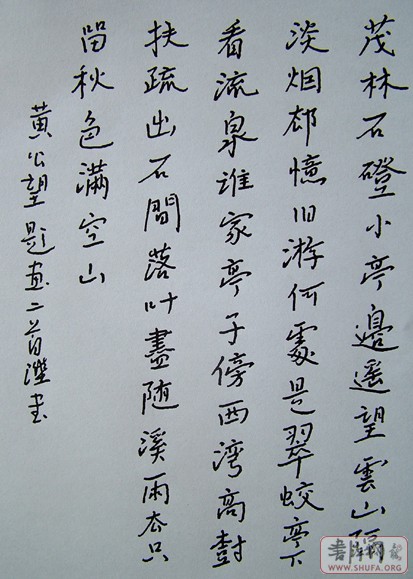 茂林石磴小亭邊遥望雲山隔
淡烟却憶旧游何處是翠蛟亭下
看流泉誰家亭子傍西湾高樹
扶疏出石間落叶盡随溪雨去只
留秋色滿空山
黄公望题画二首书
書法网
WWW.SHUFA.ORG